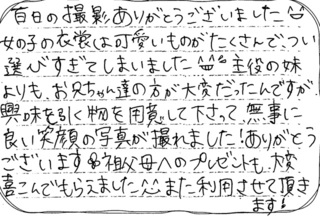 百日の撮影ありがとうございました
女の子の衣裳は可愛いものがたくさんで、つい
選びすぎてしまいました 主役の妹
よりも、お兄ちゃん達の方が大変だったんですが
興味を引く物を用意して下さって、無事に
良い笑顔の写真が撮れました!ありがとう
ございます 祖父母へのプレゼントも、大変
喜こんでもらえました^^また利用させて頂き
ます!